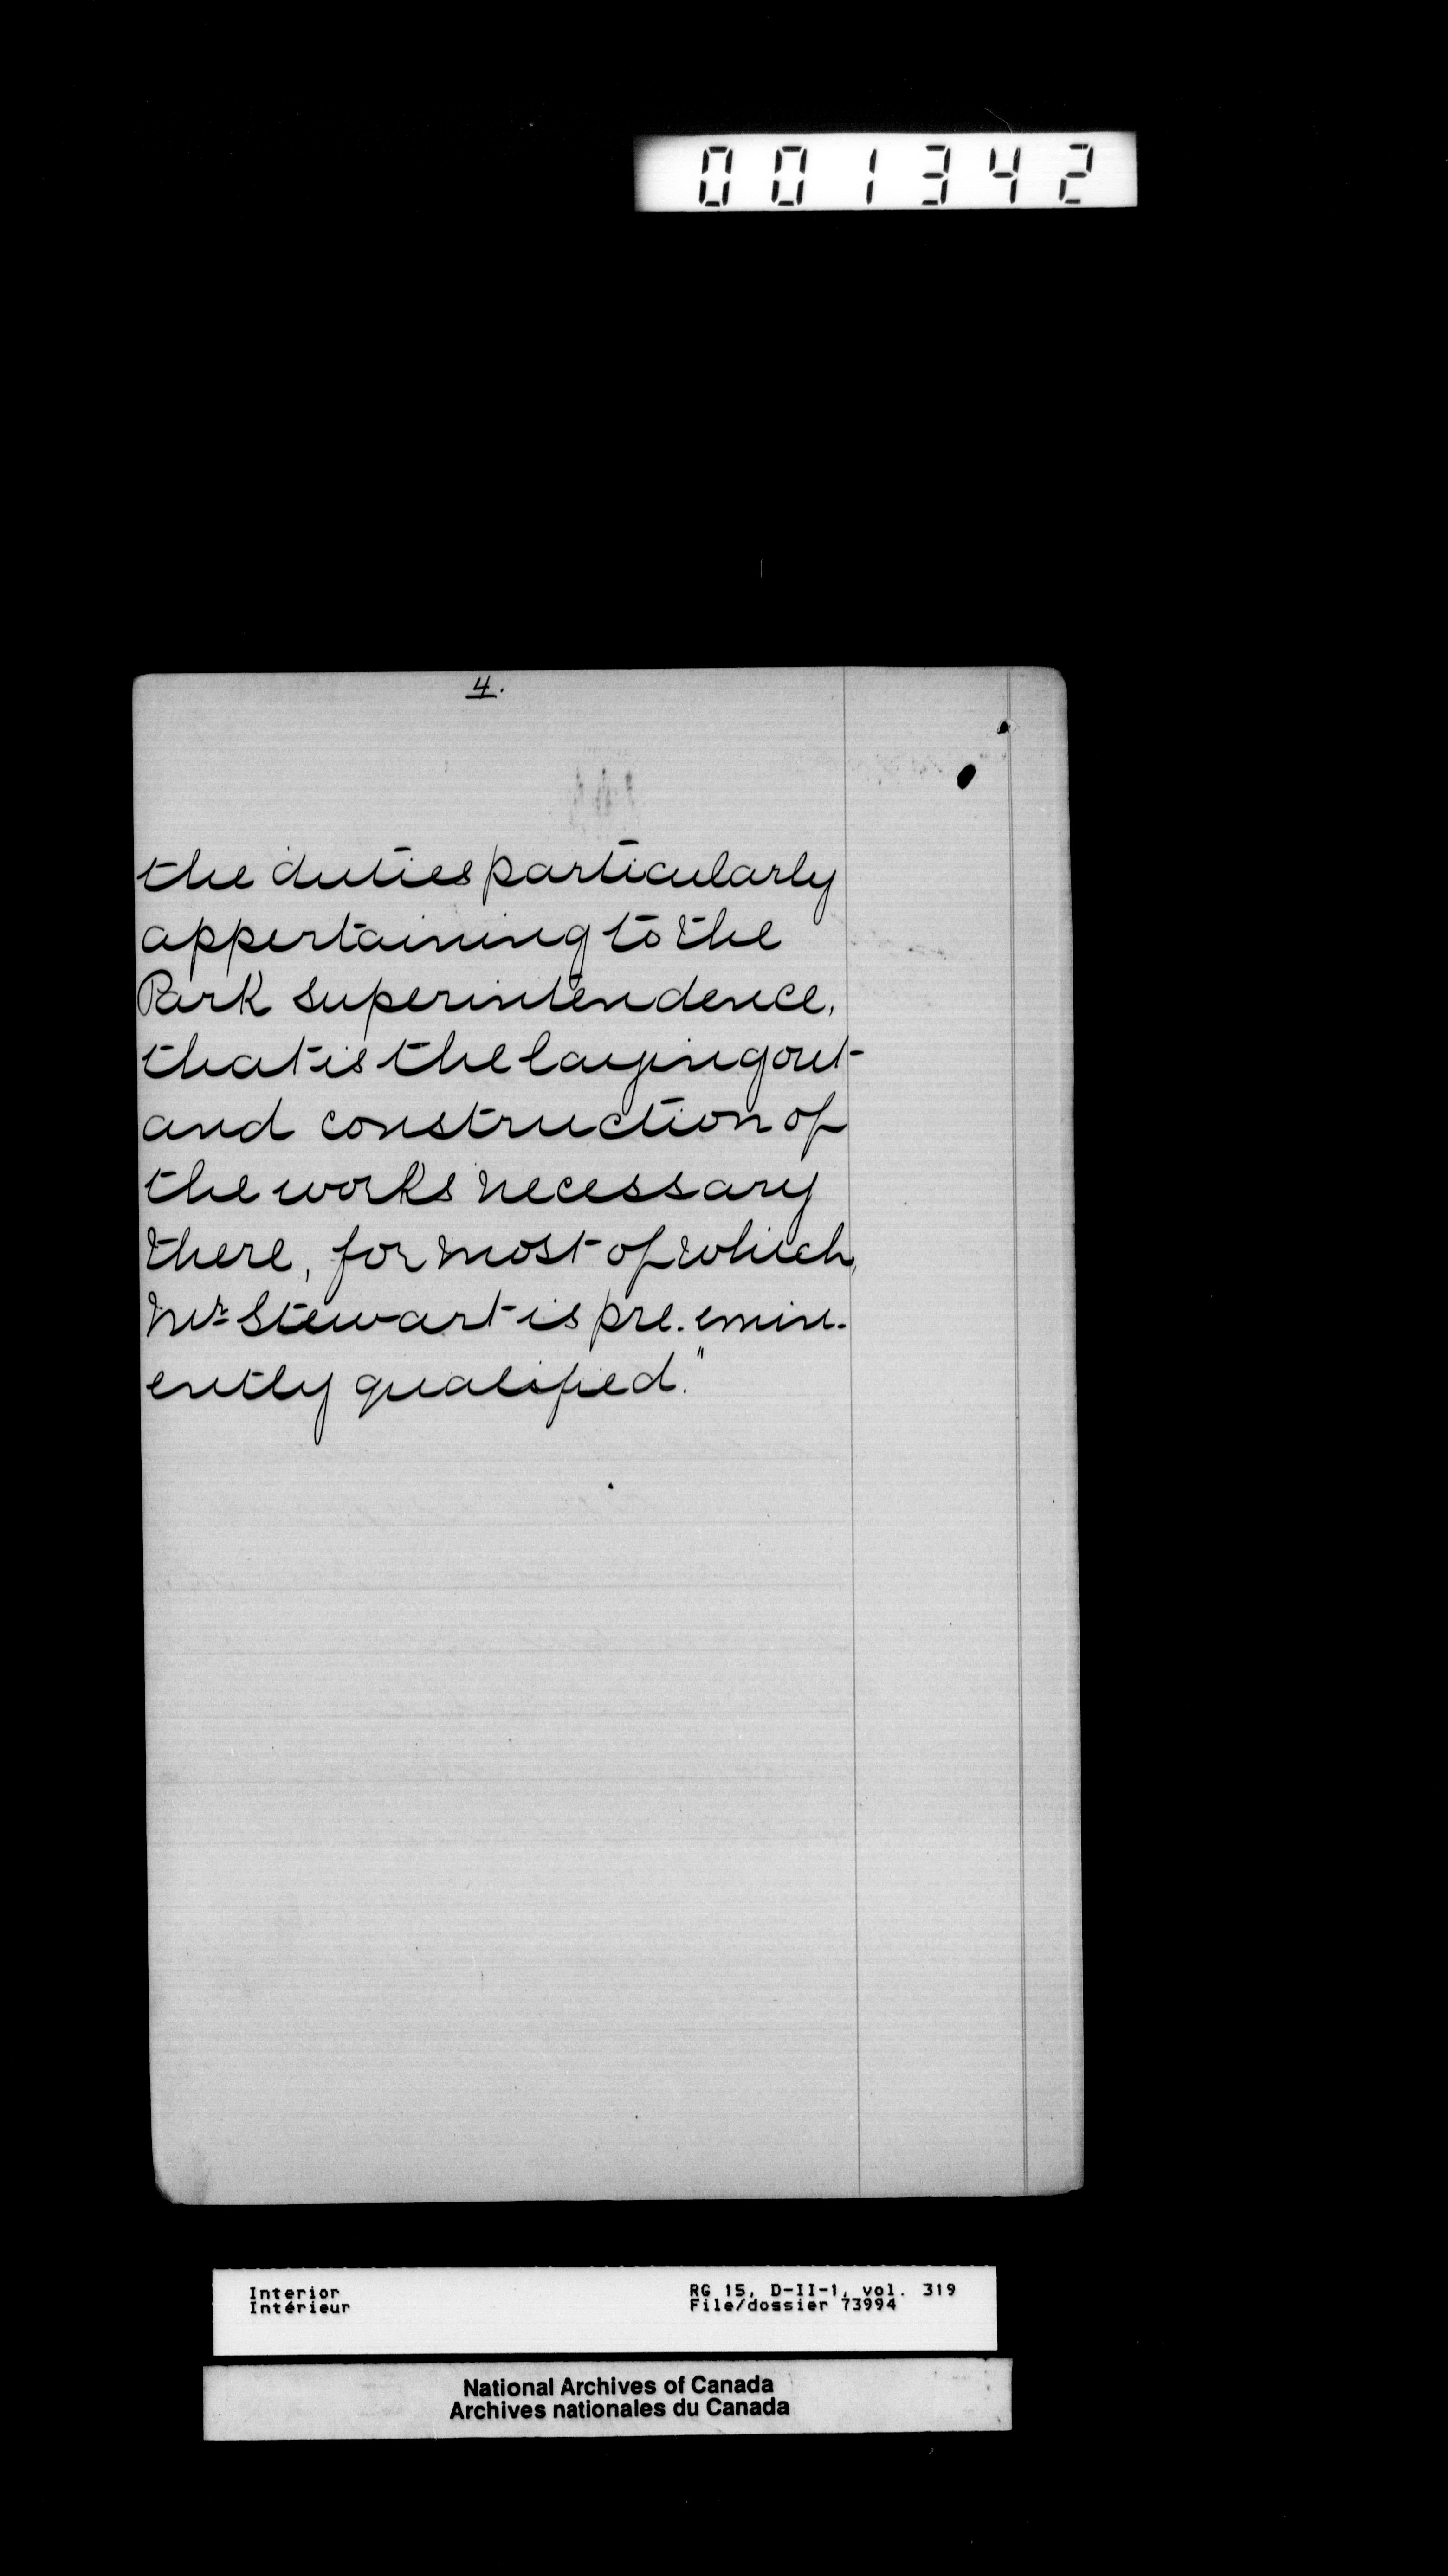 001342
4.
the duties particularly
appertaining to the
Park superintendence,
that is the laying out
and construction of
the works necessary
there, for most of which,
Mr. Stewart is pre-emin-
ently qualified."
Interior
Intérieur
RG 15, D-II-1, vol. 319
File/dossier 73994
National Archives of Canada
Archives nationales du Canada